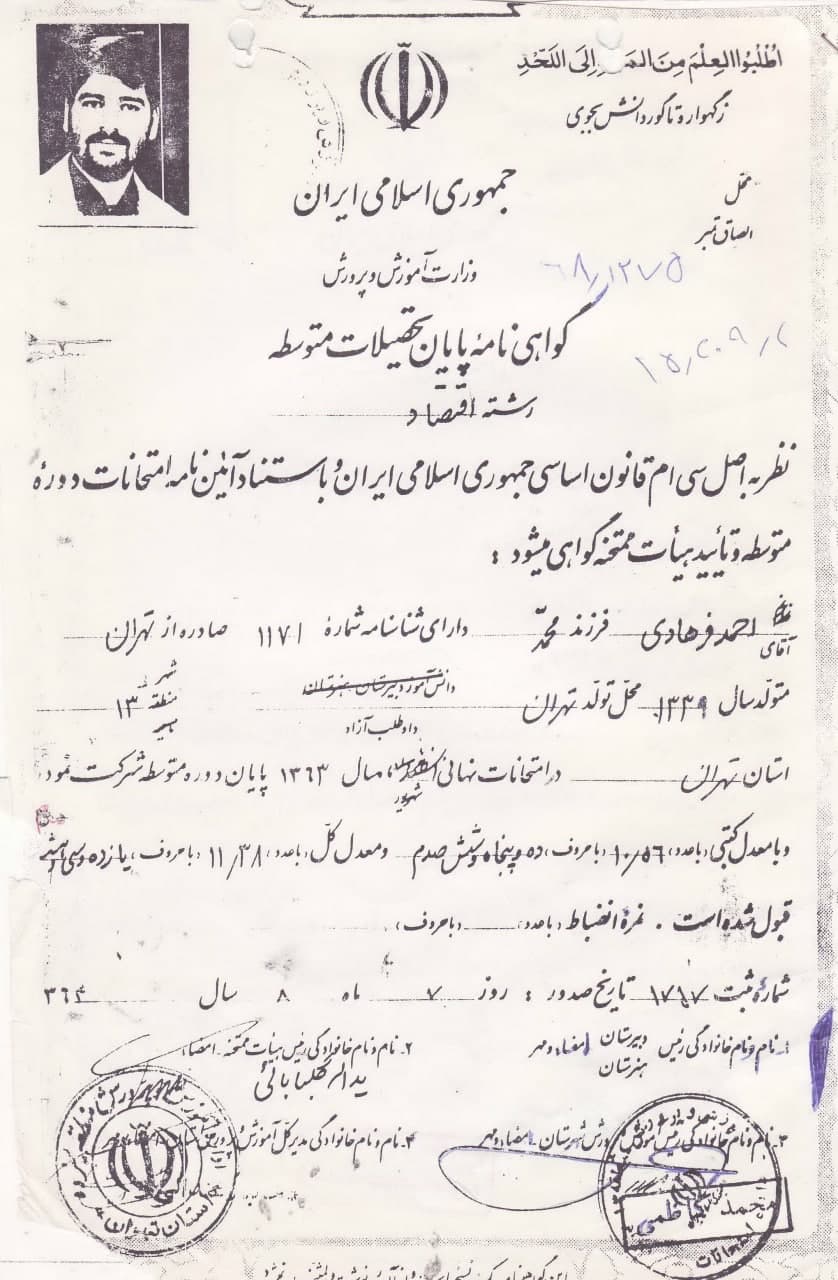 اُطْلُبُوا العِلْمَ مِنَ المَهْدِ اِلَى اللَّحَدِ
ز گهواره تا گور دانش بجوی
جمهوری اسلامی ایران
محل
الصاق تمبر
وزارت آموزش و پرورش
۶۸٫۱۲۷۵
گواهی نامهٔ پایان تحصیلات متوسطه
رشته اقتصاد
نظر به اصل سی ام قانون اساسی جمهوری اسلامی ایران و با استناد آئین نامه امتحانات دورهٔ
متوسطه و تأیید هیأت ممتحنه گواهی میشود :
آقای احمد فرهادی فرزند محمّد دارای شناسنامه شمارهٔ ۱۱۷۱ صادره از تهران
متولد سال ۱۳۳۹ محل تولد تهران دانش آموز دبیرستان هنرستان داوطلب آزاد شهر منطقه ۱۳ ناحیه
استان تهران در امتحانات نهائی شهریور ماه سال ۱۳۶۳ پایان دوره متوسطه شرکت نموده
و با معدل کتبی (با عدد) ۱۰/۵۶ (با حروف) ده و پنجاه و شش صدم و معدل کل (با عدد) ۱۱/۳۸ (با حروف) یازده و سی و هشت
قبول شده است . نمرهٔ انضباط (با عدد) (با حروف)
شمارهٔ ثبت ۱۷۱۷ تاریخ صدور : روز ۷ ماه ۸ سال ۳۶۴
۱- نام و نام خانوادگی رئیس دبیرستان هنرستان امضاء و مهر
۲- نام و نام خانوادگی رئیس هیأت ممتحنه امضاء
یداله گلبابائی
۳- نام و نام خانوادگی رئیس آموزش و پرورش شهرستان امضاء و مهر
۴- نام و نام خانوادگی مدیر کل آموزش و پرورش استان امضاء و مهر
محمد کاظمی
امتحانات
استان تهران